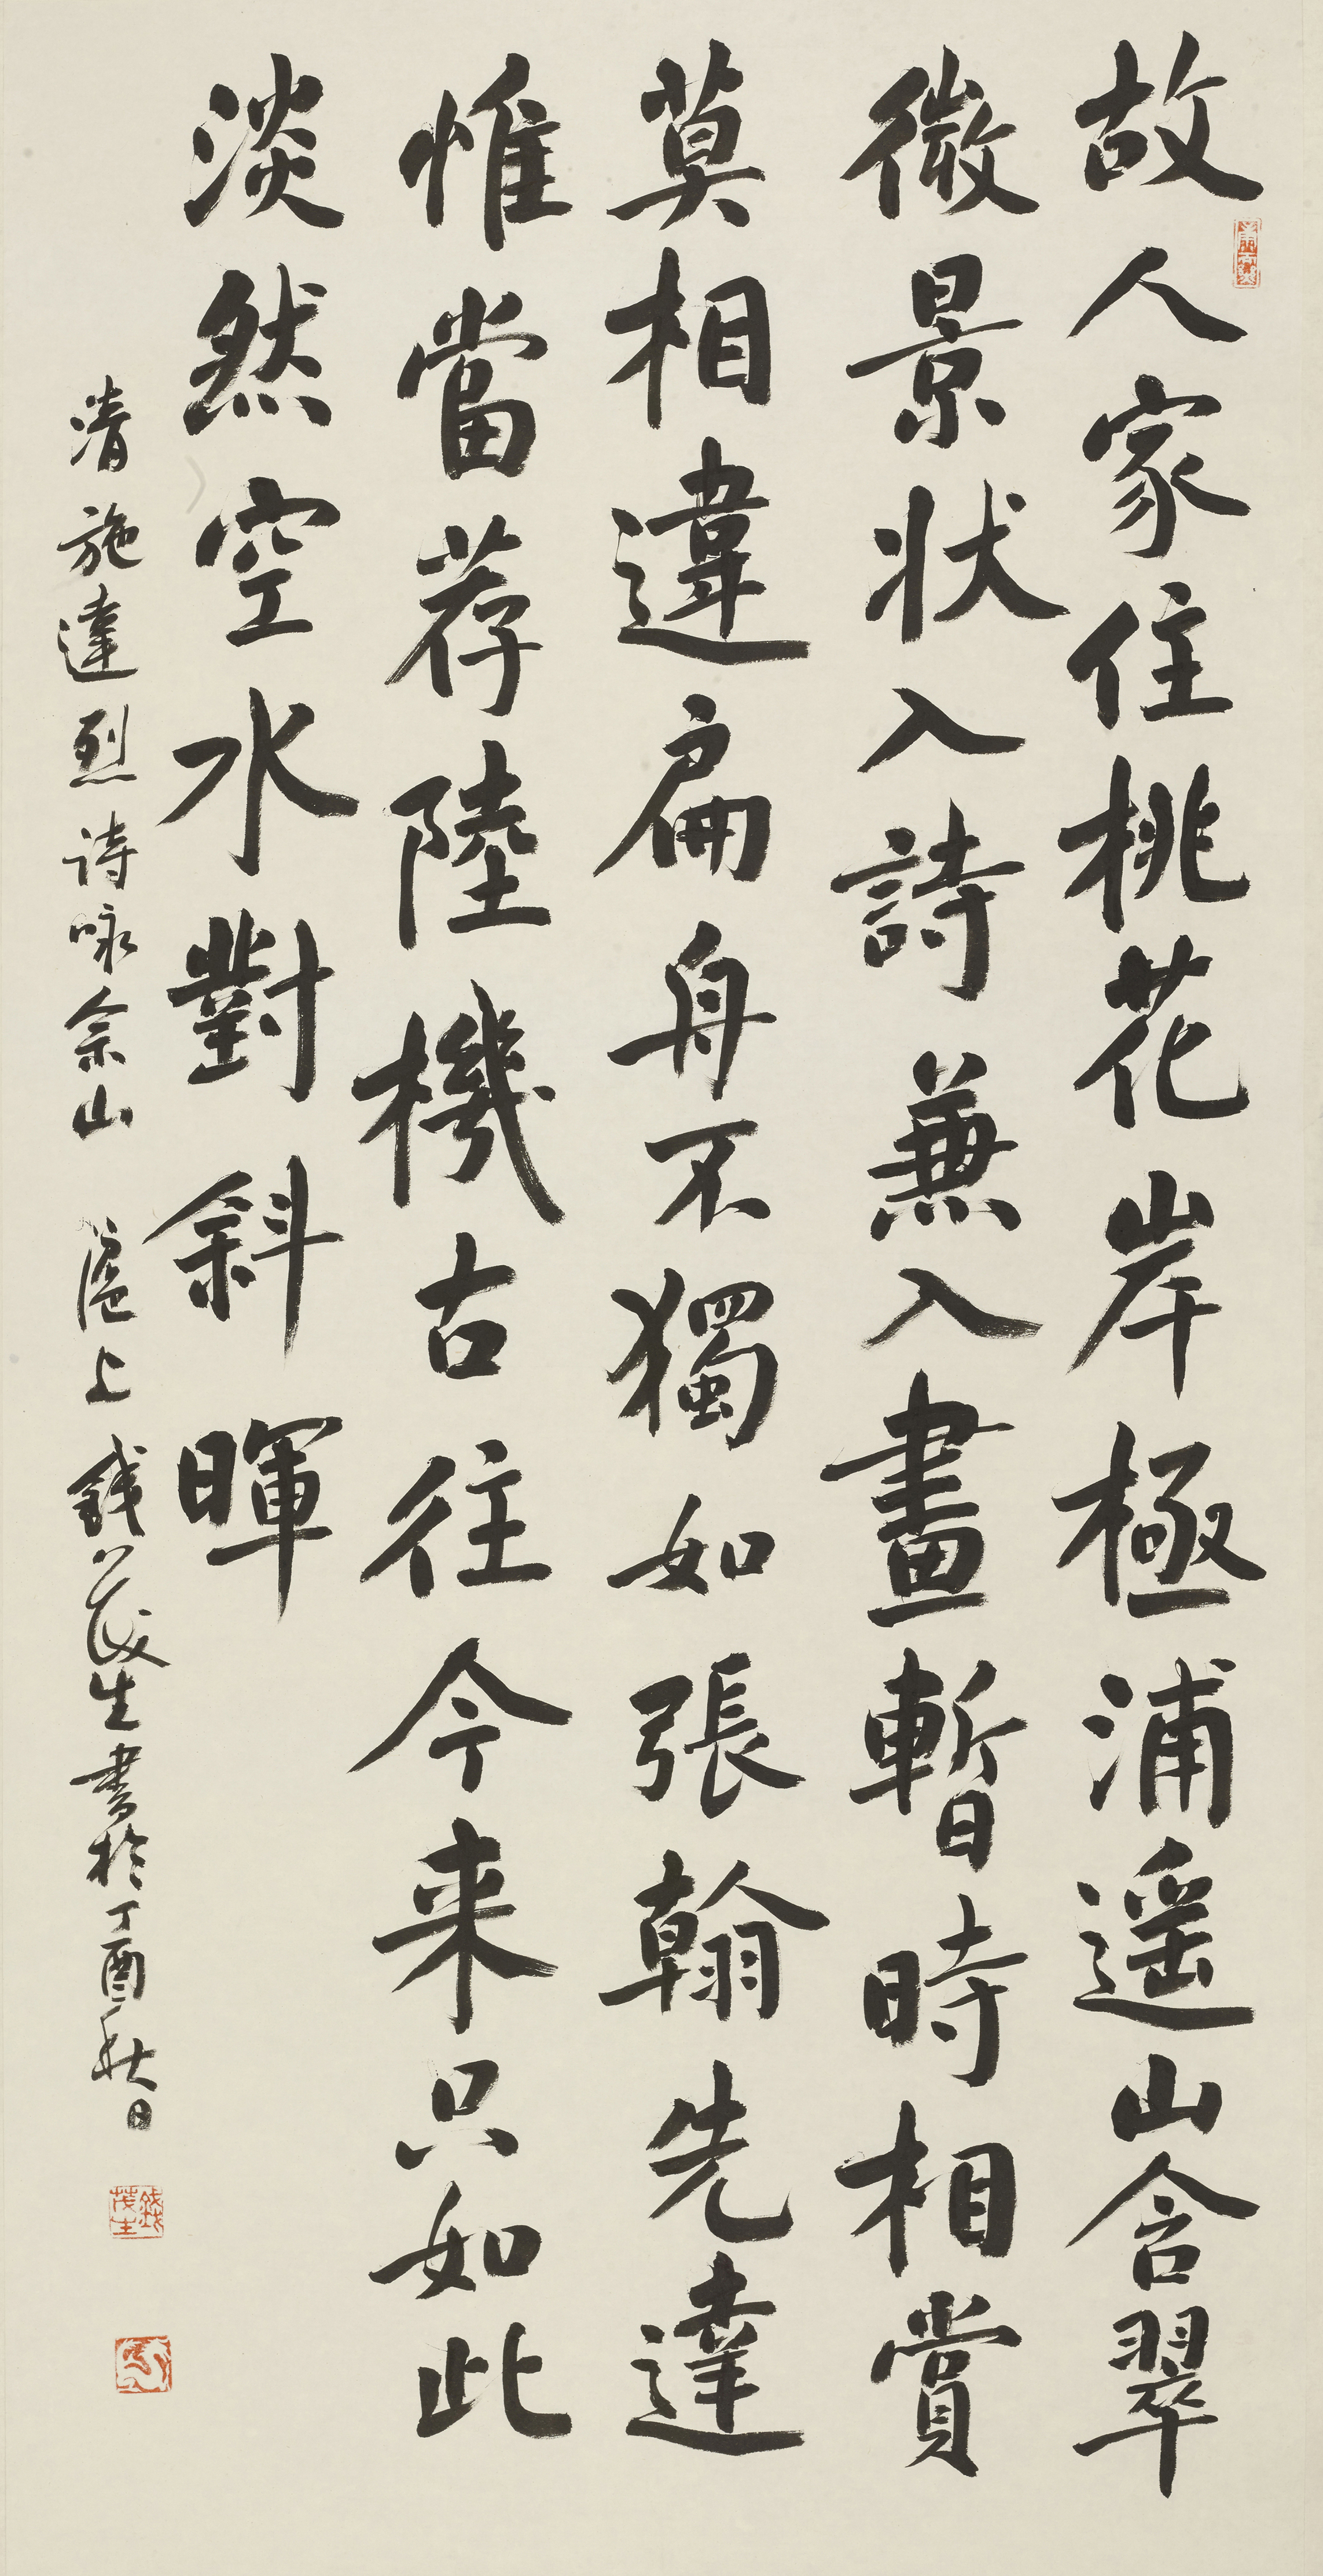 故人家住桃花岸極浦遥山含翠
微景状入詩兼入畫暫時相賞
莫相違扁舟不獨如張翰先達
惟當荐陸機古往今来只如此
淡然空水對斜暉
清施達烈诗咏佘山 滬上钱茂生書於丁酉秋日
錢茂生